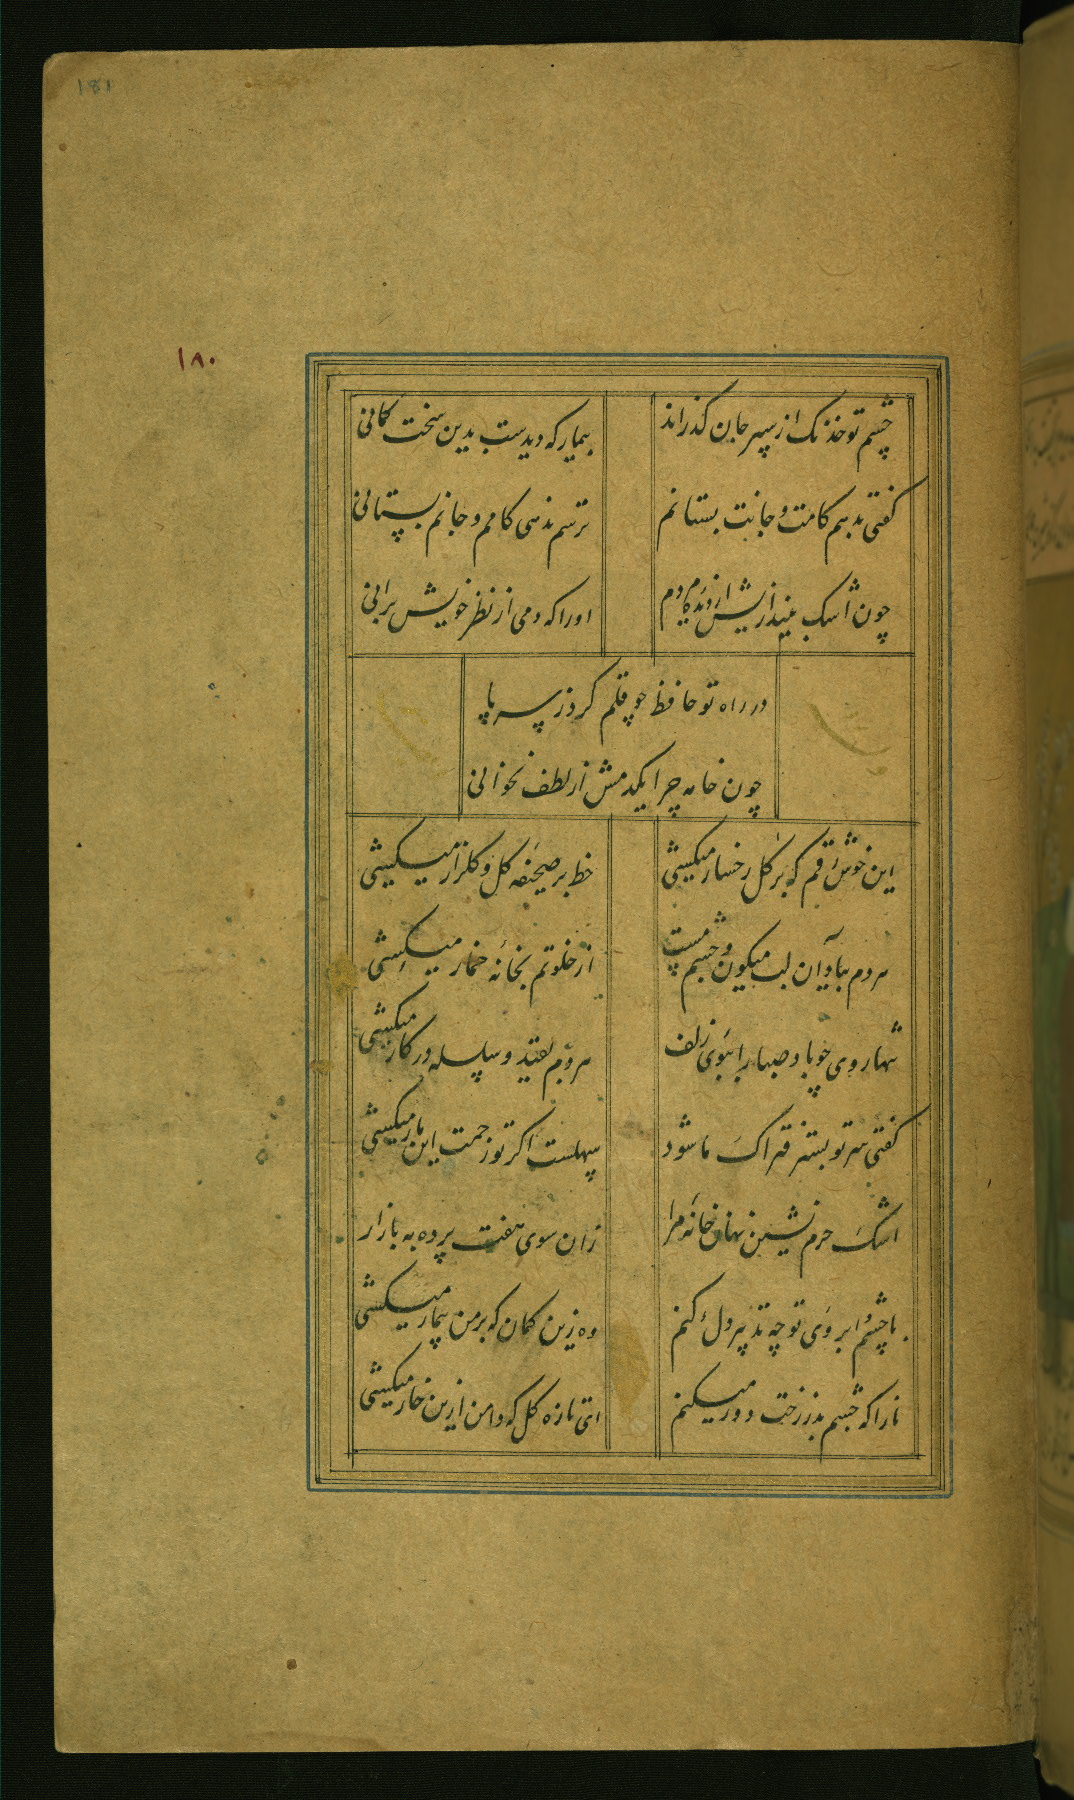 ۱۸۱
۱۸۰
چشم تو خدنک از سپر جان کذراند بیمار که دیدست بدین سخت کمانی
کفتی بدهم کامت و جانت بستانم ترسم ندهی کامم و جانم بستانی
چون اشک بیندازیش از دیده مردم اورا که دمی از نظر خویش برانی
در راه تو حافظ چو قلم کرد ز سر پا
چون خامه چرا یکدمش از لطف نخوانی
این خوش رقم که بر کل رخسار میکشی خط بر صحیفه کل و کلزار میکشی
هردم بیاد آن لب میکون و چشم مست از خلوتم بخانه خمار میکشی
شهاروی چو باد صبا را ببوی زلف هردم بقید سلسله در کار میکشی
کفتی سر تو بسته فتراک ما شود سهلست اکر تو زحمت این بار میکشی
اشک حرم نشین نهان خانه مرا زان سوی هفت پرده به بازار
با چشم و ابروی تو چه تدبیر دل کنم وه زین کمان که بر من بیمار میکشی
تا را که چشم بد ز رخت دور میکنم ای تازه کل که دامن ازین خار میکشی